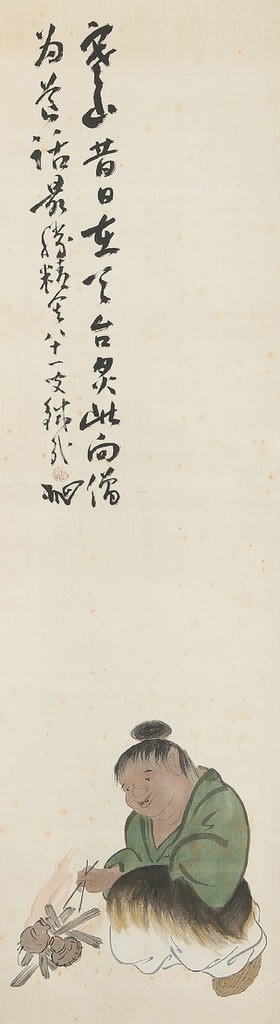 寒山昔日在天台炙此向僧
為話最勝精舍八十一叟鐵